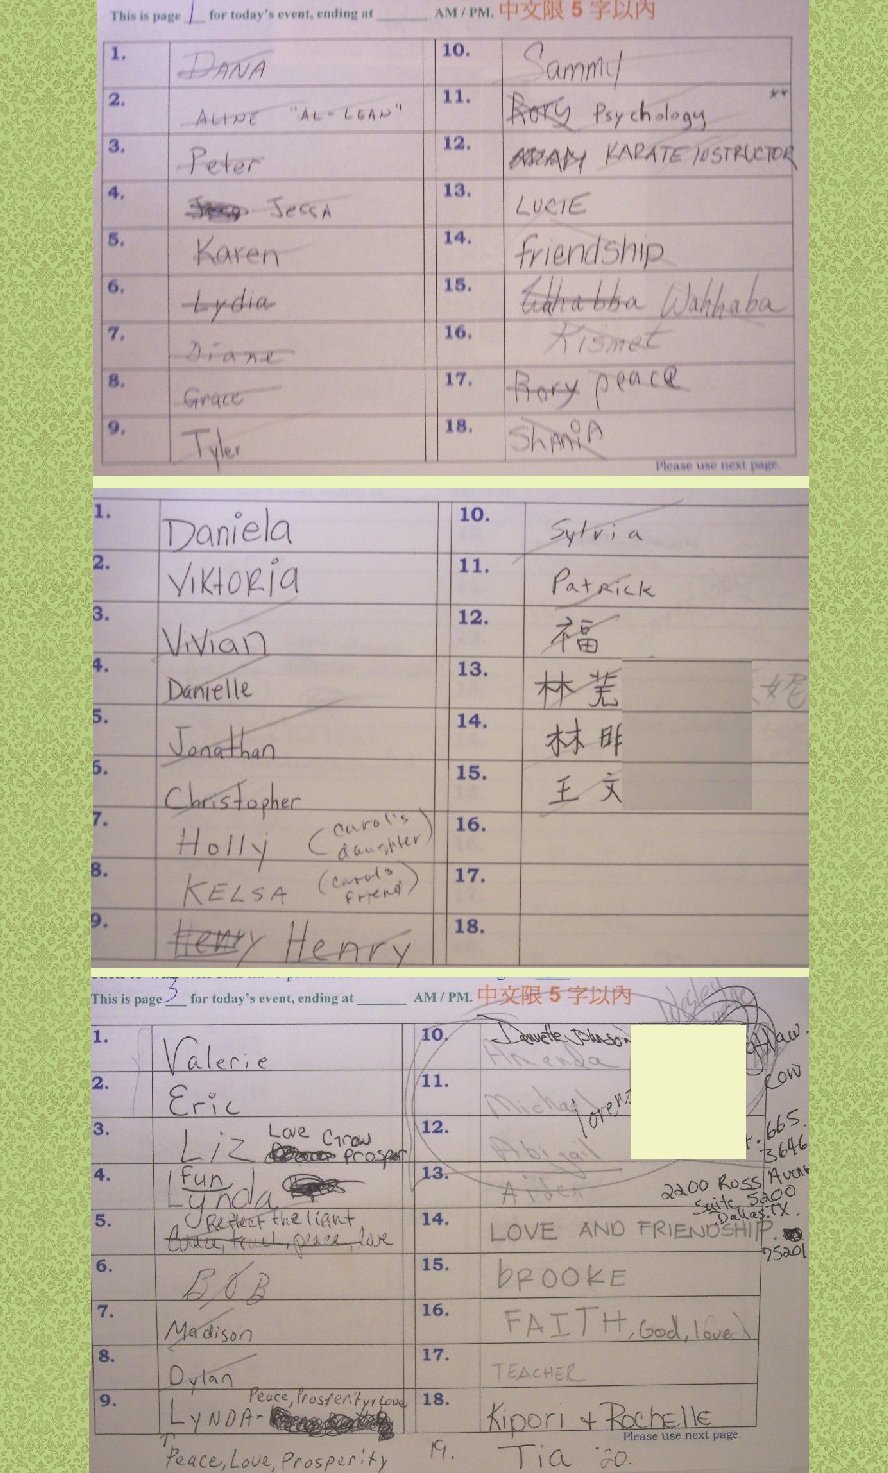 This is page 1 for today's event, ending at ______ AM / PM. 中文限 5 字以內
1. DANA
2. ALINE "AL-LEAN"
3. Peter
4. JESSA
5. Karen
6. Lydia
7. Diane
8. Grace
9. Tyler
10. Sammy
11. Rory Psychology **
12. KARATE INSTRUCTOR
13. LUCIE
14. friendship
15. Wahhaba
16. Kismet
17. Rory peace
18.
Please use next page.
1. Daniela
2. VIKTORIA
3. ViVian
4. Danielle
5. Jonathan
6. Christopher
7. Holly (Carol's daughter)
8. KELSA (Carols friend)
9. Henry Henry
10. Sylvia
11. PatRick
12. 福
13. 林
14. 林
15. 王 文
16.
17.
18.
This is page 3 for today's event, ending at ______ AM / PM. 中文限 5 字以內
1. Valerie
2. Eric
3. Liz Love Grow prosper
4. Fun Lynda
5. Reflect the light
peace, love
6. BOB
7. Madison
8. Dylan
9. LYNDA- Peace, Prosperity, Love
Peace, Love, Prosperity
10. Danielle Johnson
Amanda
11. Michael
12. Abigail
13. Aiden
14. LOVE AND FRIENDSHIP.
15. bROOKE
16. FAITH, God, love
17. TEACHER
18. Kipori + Rochelle
Please use next page
19. Tia 20.
665.
3646
2200 Ross Avenue
Suite 5200
Dallas, TX.
75201